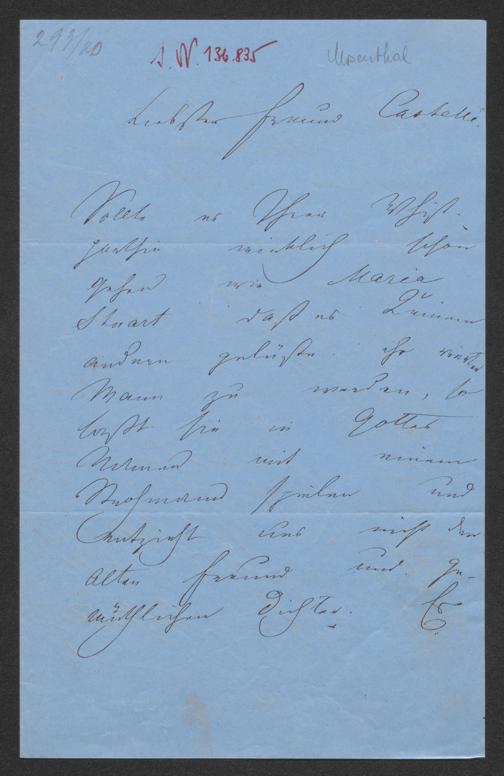 293/20
I.N. 136.835
Mosenthal
Liebster Freund Castelli.
Sollte es Ihrer Whist-
parthie wirklich schon
gehen wie Maria
Stuart daß es Keinen
andern gelüste ihr vierter
Mann zu werden, so
laßt sie in Gottes
Namen mit einem
Strohmann spielen und
entzieht uns nicht den
alten Freund und ge-
müthlichen Dichter. Es